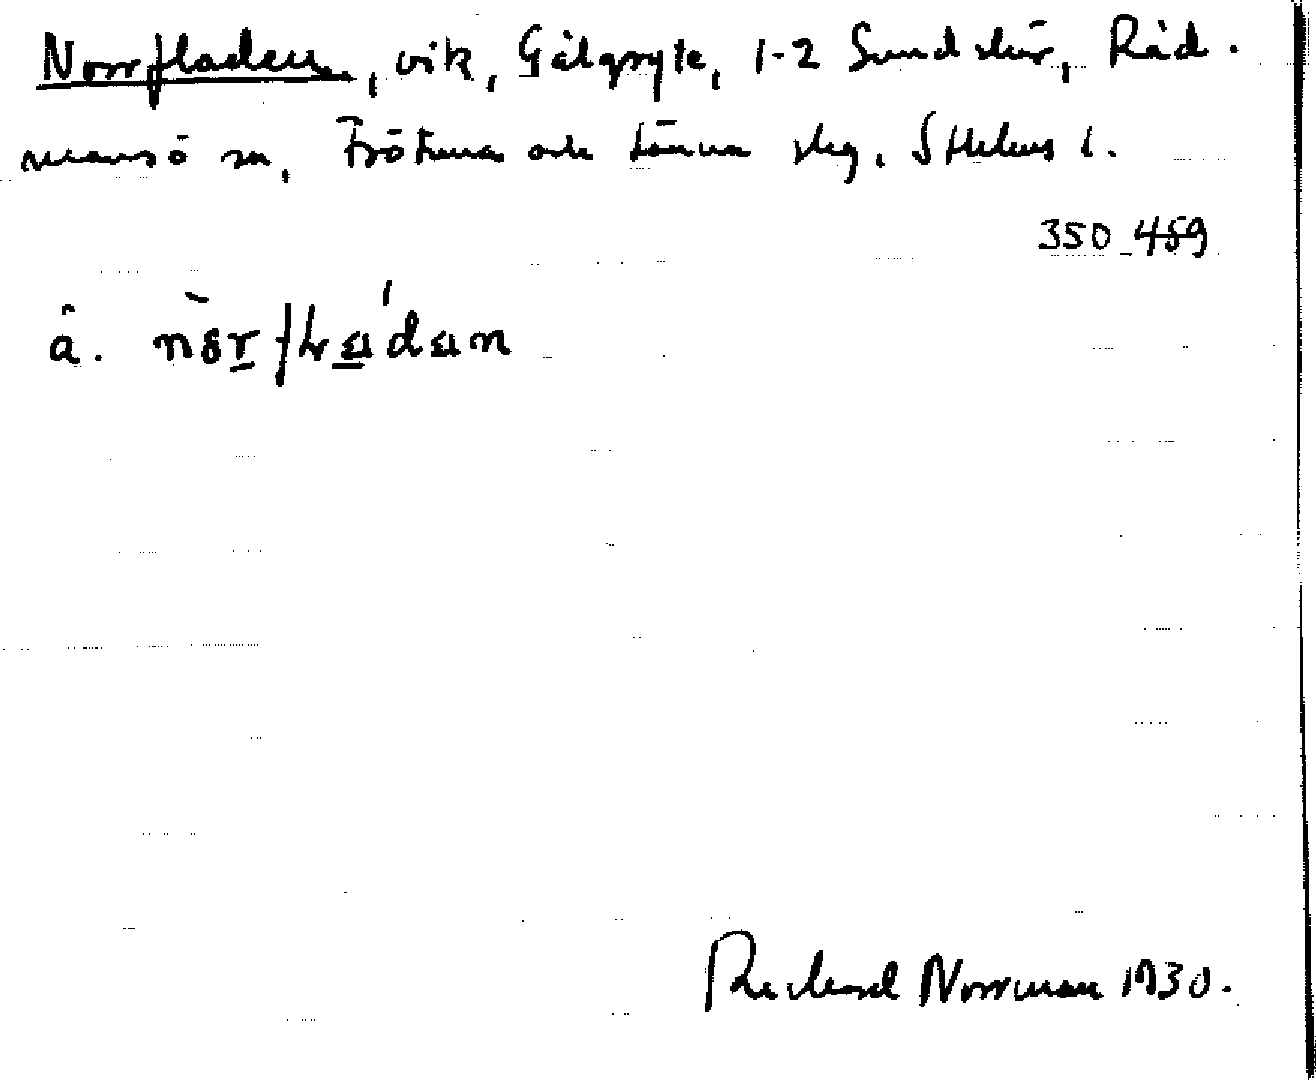 Norrfladen, vik, Gälgryte, 1-2 Sundskär, Råd-
mansö sn, Frötuna och Länna skg, Sthlms l.
350 459
â. nòrfladan
Richard Norrman 1930.